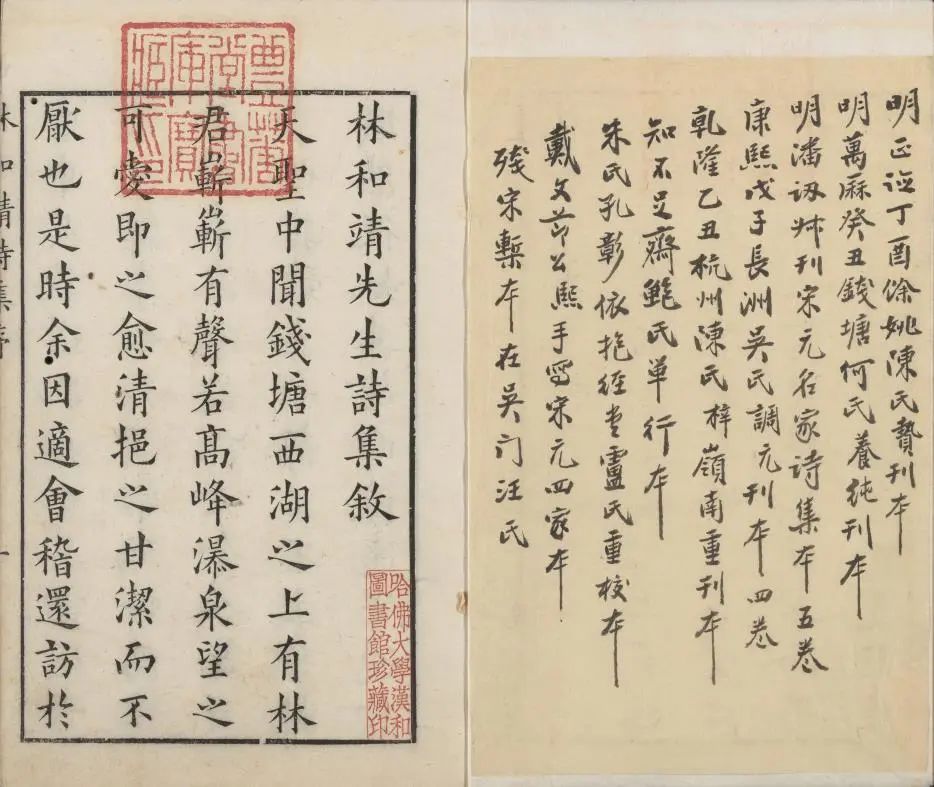 明正丁酉餘姚陳氏贄刊本
明萬厤癸丑錢塘何氏養純刊本
明潘訒叔刊宋元名家诗集本五卷
康熙戊子長洲吳氏調元刊本四卷
乾隆乙丑杭州陳氏梓嶺南重刊本
知不足齋鮑氏單行本
朱氏孔彰依抱经堂盧氏重校本
戴文节公熙手写宋元四家本
殘宋槧本在吳门汪氏
林和靖先生詩集敘
天聖中聞錢塘西湖之上有林
君嶄嶄有聲若高峰瀑泉望之
可愛即之愈清挹之甘潔而不
厭也是時余因適會稽還訪於
林和靖詩集序
一
豐華堂書庫寶藏印
哈佛大學漢和
圖書館珍藏印